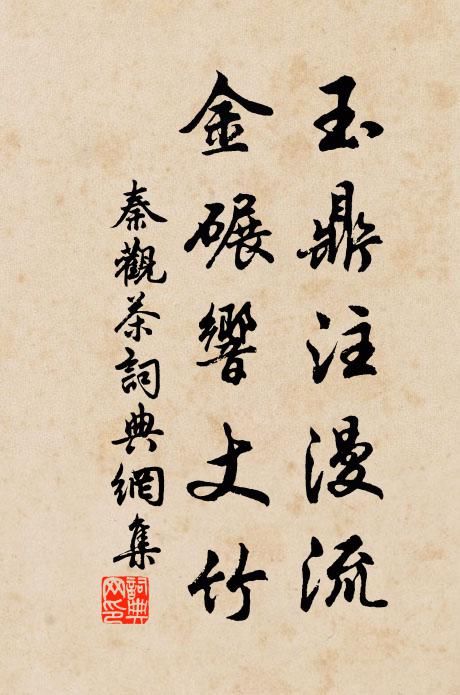 玉鼎注漫流
金碾響丈竹
秦觀茶詞典網集
詞典网印